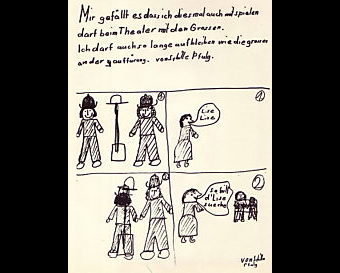 Mir gefällt es das ich diesmal auch mit spielen
darf beim Theater mit den Grossen.
Ich darf auch so lange aufbleiben wie die grossen
an der aufführung. von Sybille Pfulg.
1
Lise
Lise
2
So hilf
d'Lise
sueche
von Sybille
Pfulg